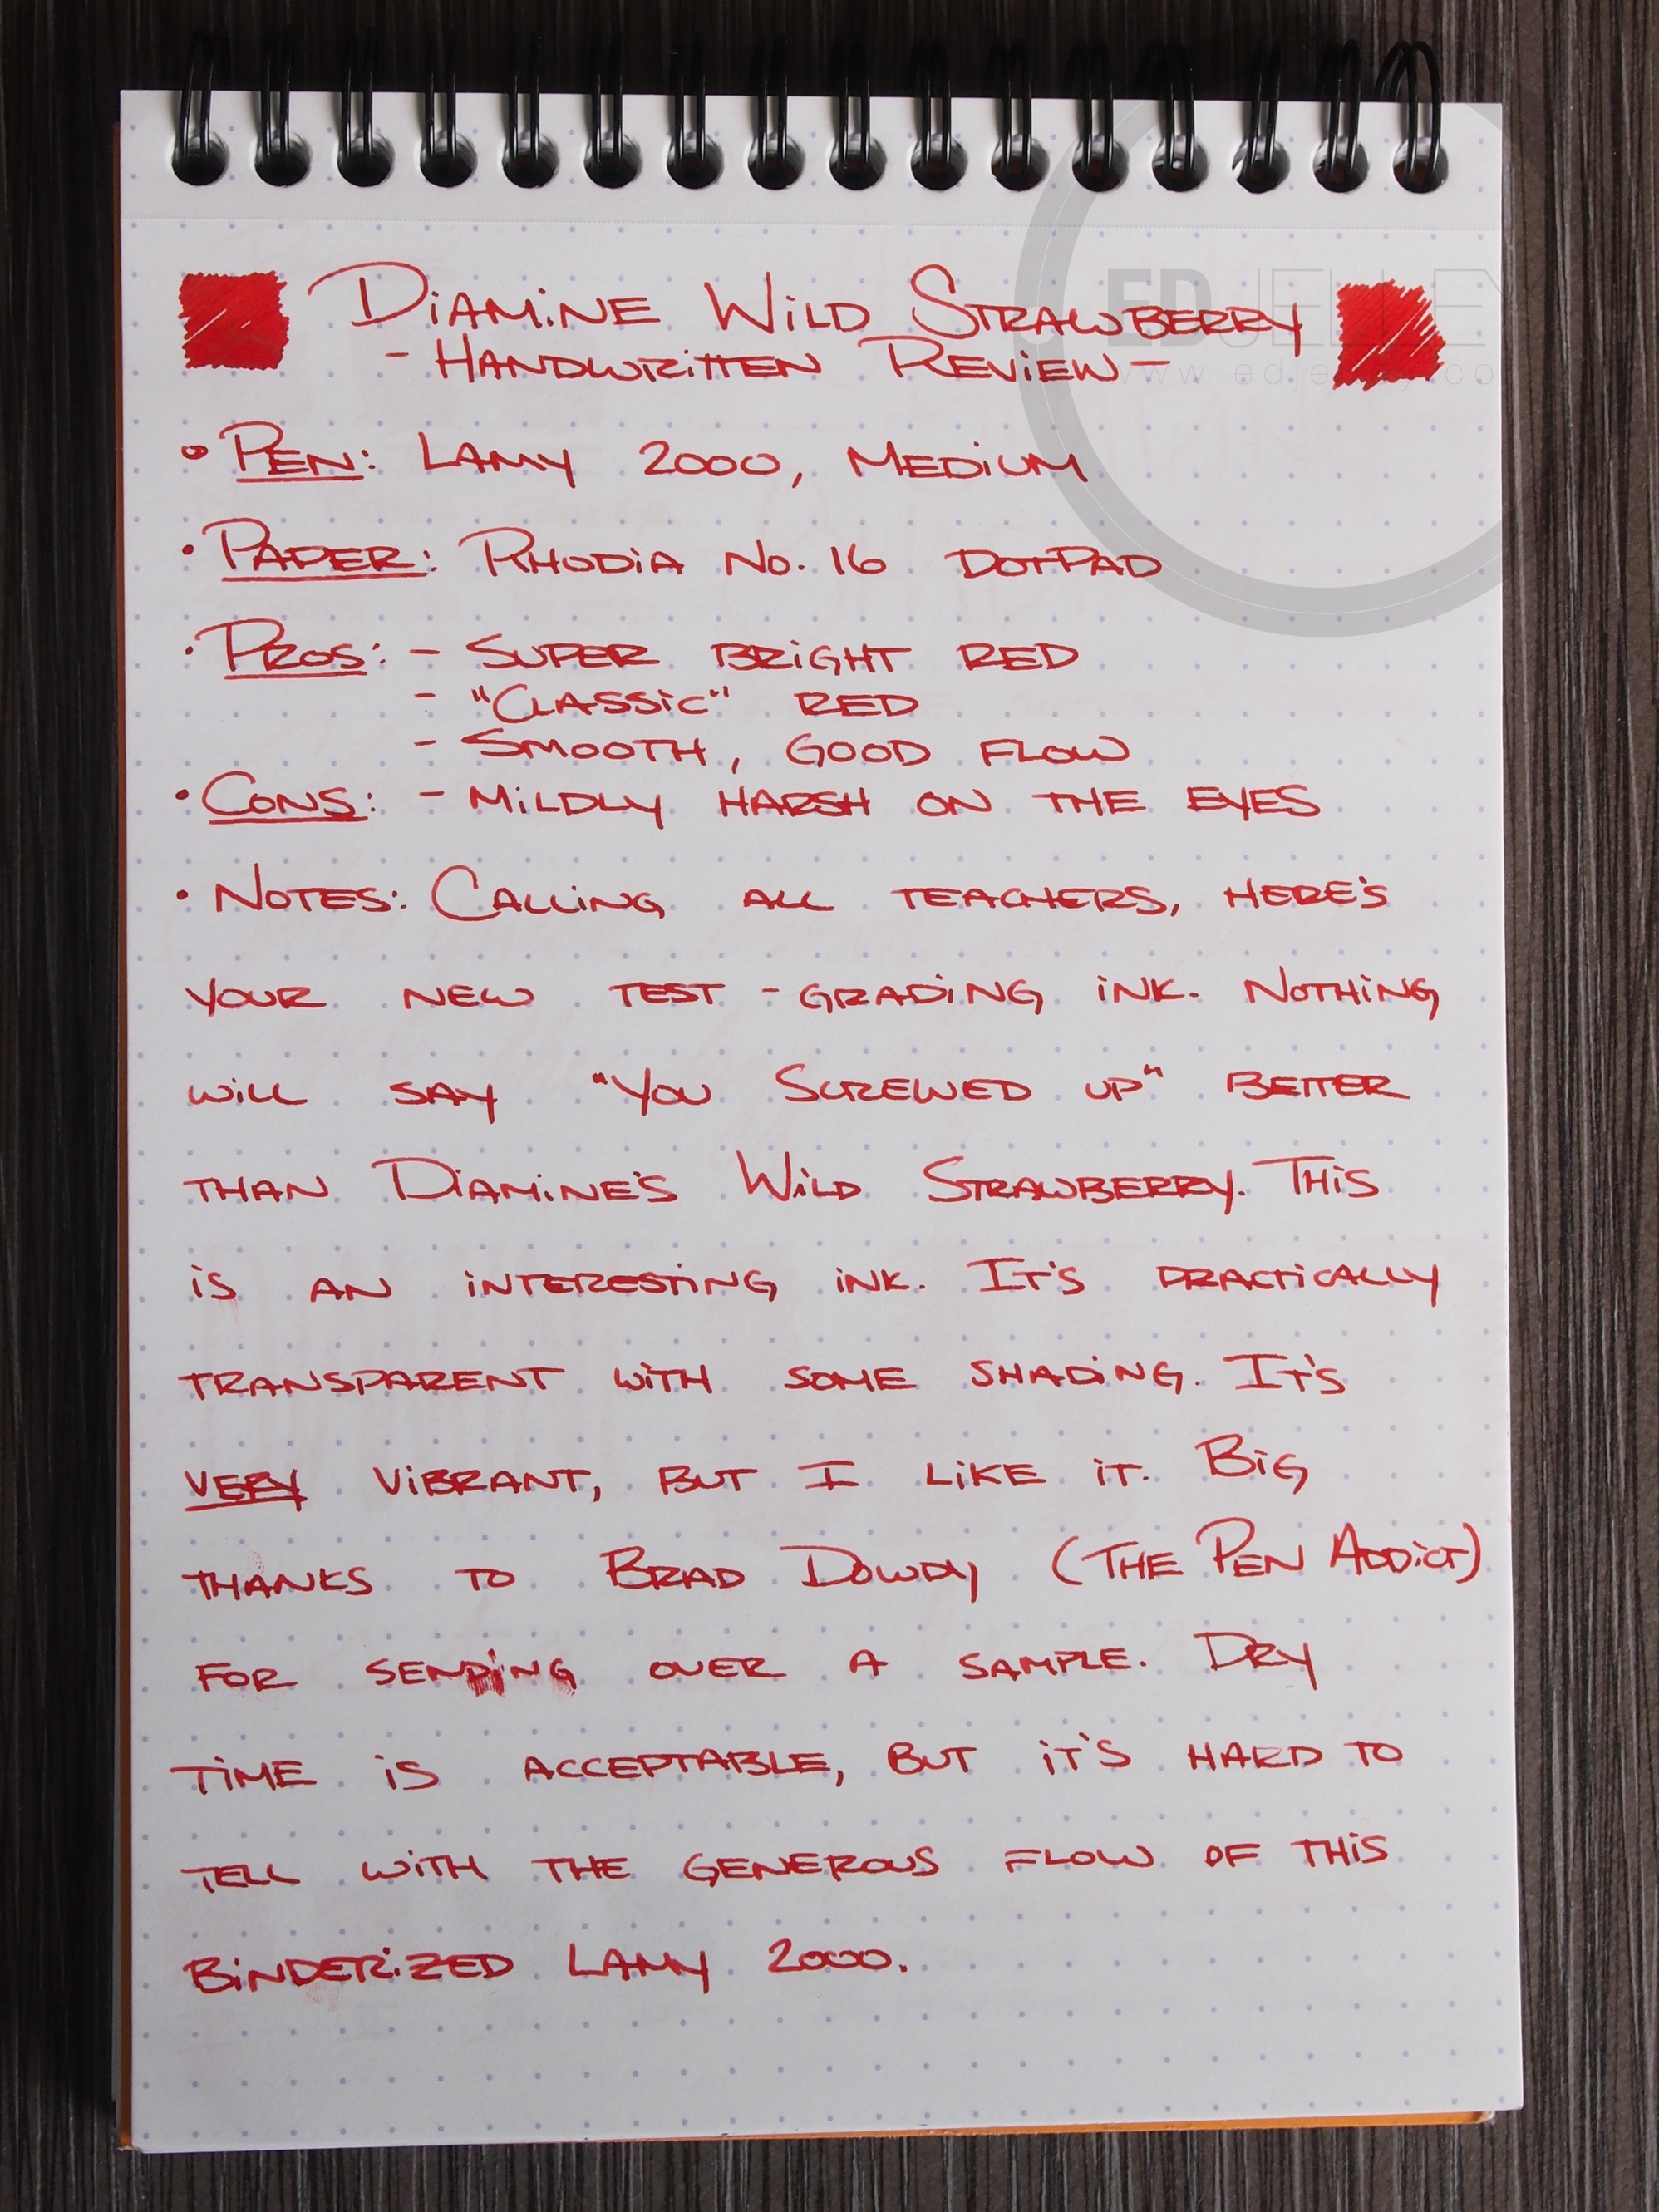 Diamine Wild Strawberry
- Handwritten Review -
• Pen: Lamy 2000, Medium
• Paper: Rhodia No. 16 DotPad
• Pros: - Super bright red
- "Classic" red
- Smooth, good flow
• Cons: - Mildly harsh on the eyes
• Notes: Calling all teachers, here's
your new test-grading ink. Nothing
will say "You Screwed up" better
than Diamine's Wild Strawberry. This
is an interesting ink. It's practically
transparent with some shading. It's
very vibrant, but I like it. Big
thanks to Brad Dowdy (The Pen Addict)
for sending over a sample. Dry
time is acceptable, but it's hard to
tell with the generous flow of this
binderized Lamy 2000.
ED JELLEY
www.edjelley.co